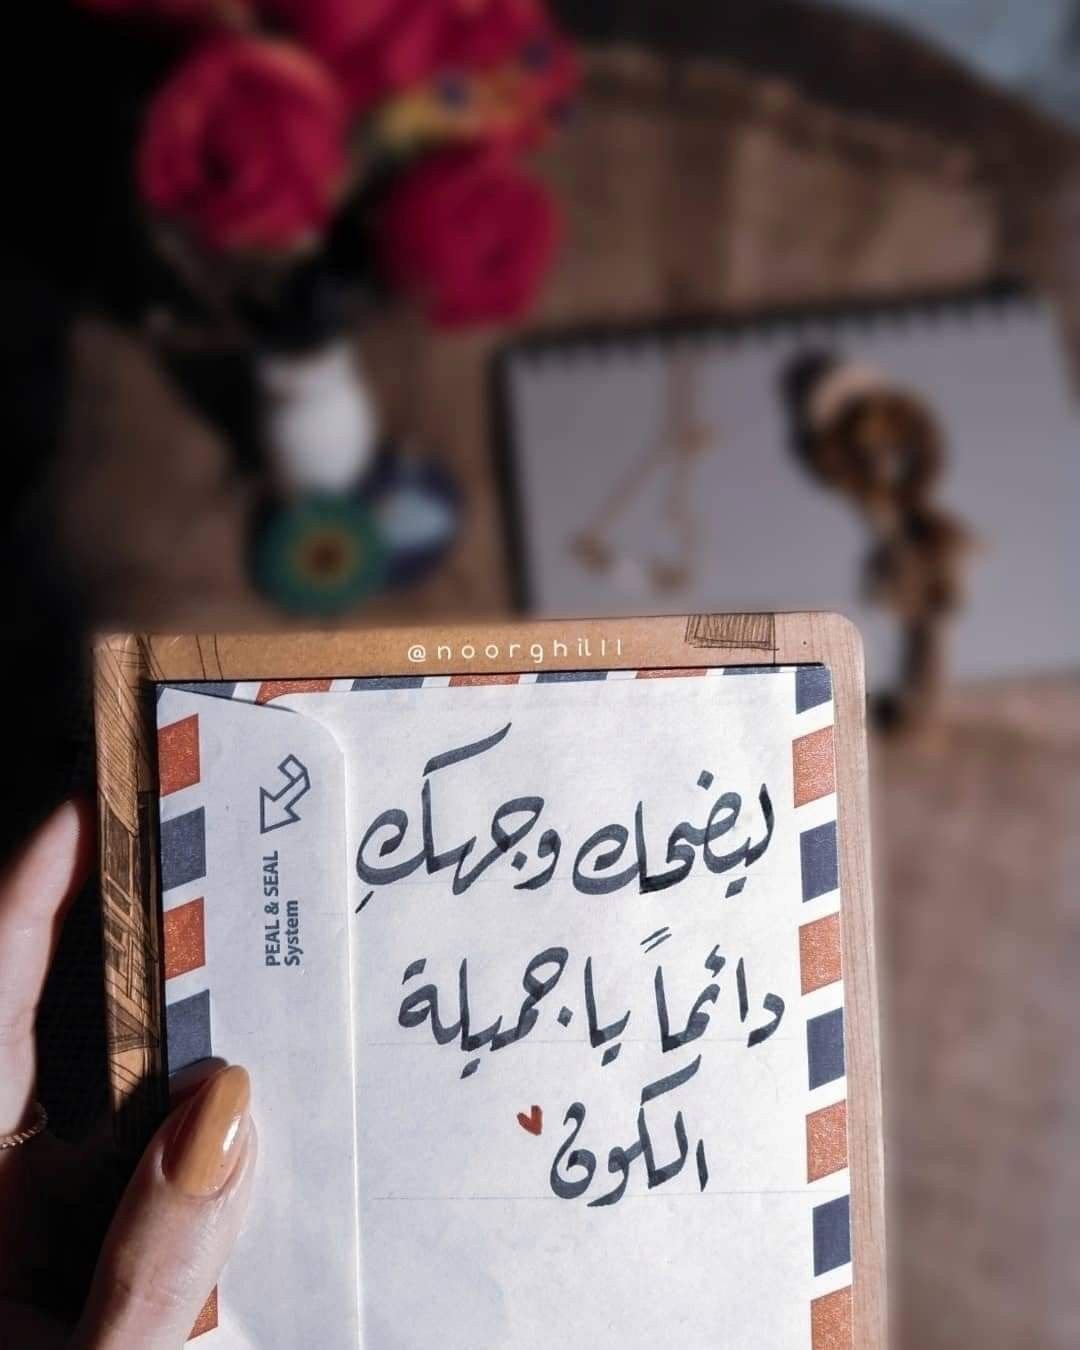 @noorghil11
PEAL & SEAL
System
ليضحك وجهكِ
دائماً يا جميلة
الكون